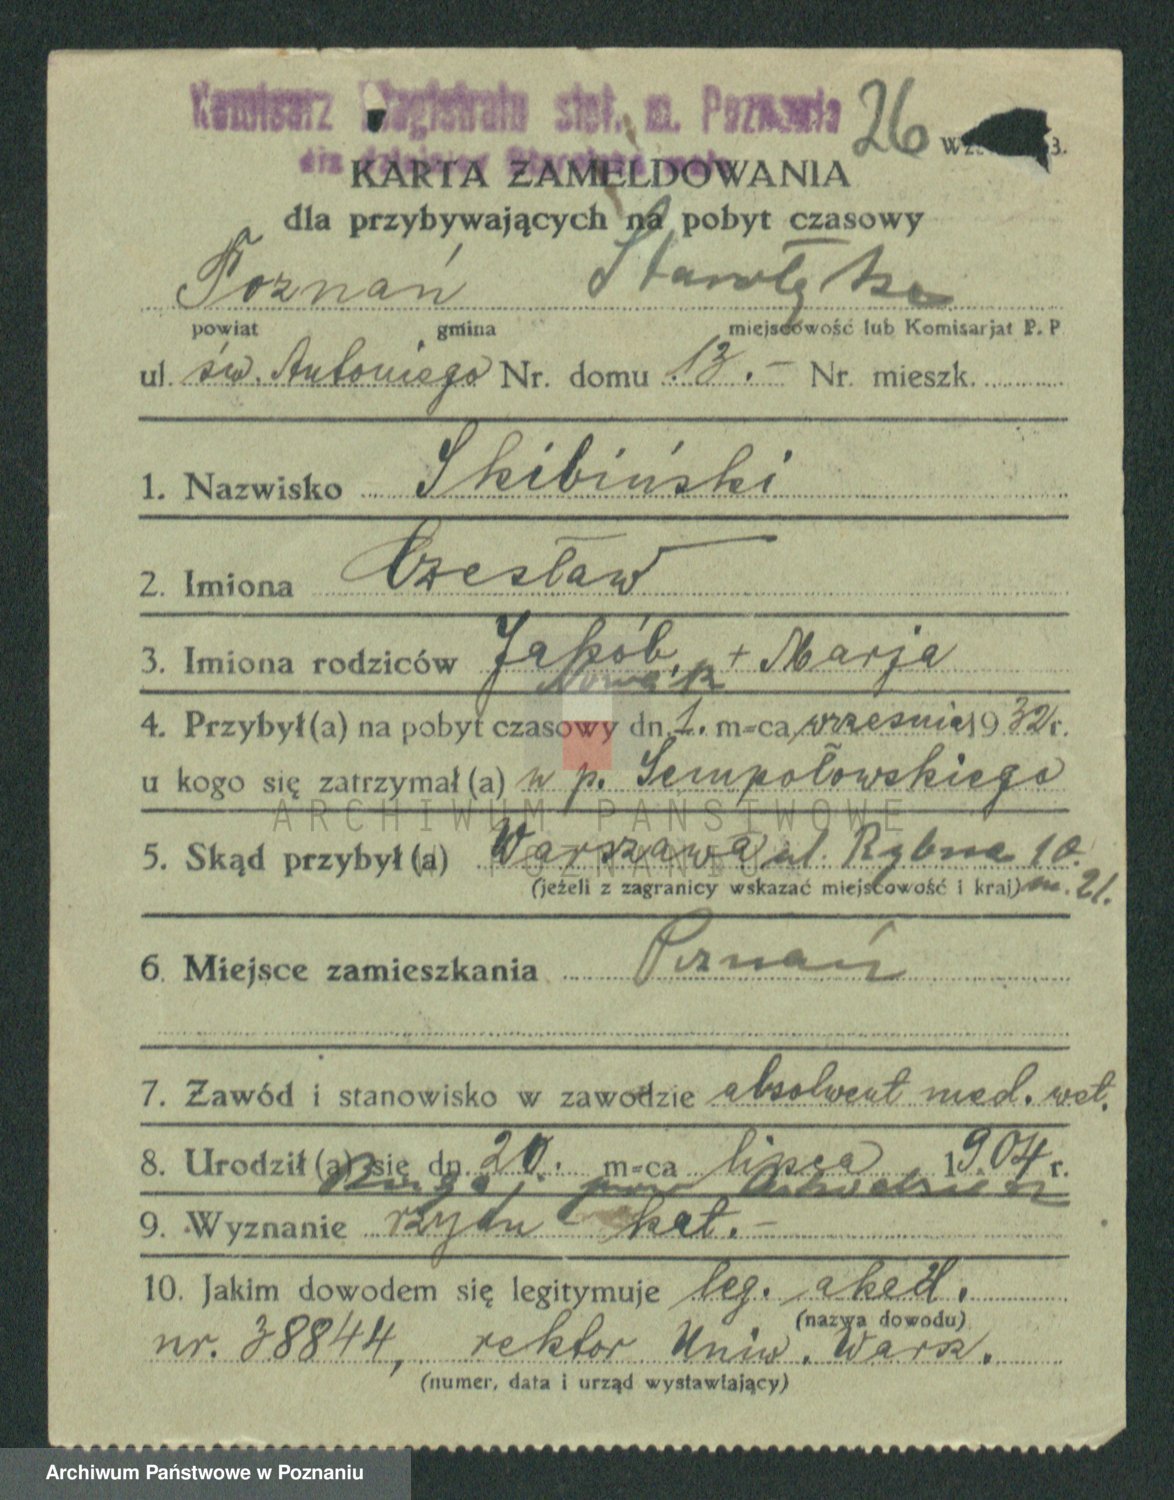 Komisarz Magistratu stoł. m. Poznania
26
KARTA ZAMELDOWANIA
dla przybywających na pobyt czasowy
Poznań Starołęka
powiat gmina miejscowość lub Komisarjat P. P
ul. św. Antoniego Nr. domu 13.- Nr. mieszk.
1. Nazwisko Skibiński
2. Imiona Czesław
3. Imiona rodziców Jakób + Marja
Nowak
4. Przybył(a) na pobyt czasowy dn. 1. m-ca września 1932 r.
u kogo się zatrzymał(a) u p. Sempołowskiego
ARCHIWUM PAŃSTWOWE
W POZNANIU
5. Skąd przybył(a) Warszawa ul. Rybna 10.
(jeżeli z zagranicy wskazać miejscowość i kraj) m. 21.
6. Miejsce zamieszkania Poznań
7. Zawód i stanowisko w zawodzie absolwent med. wet.
8. Urodził(a) się dn. 20. m-ca lipca 1904 r.
9. Wyznanie rzym kat.-
10. Jakim dowodem się legitymuje leg. akad.
(nazwa dowodu)
nr. 38844, rektor Uniw. Warsz.
(numer, data i urząd wystawiający)
Archiwum Państwowe w Poznaniu